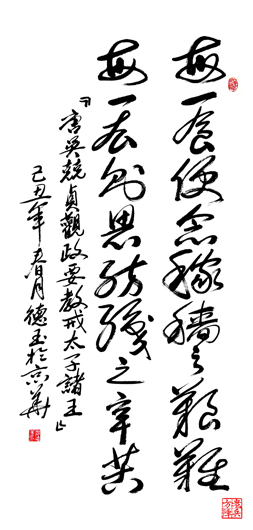 每一食便念稼穡之艱難
每一衣則思紡績之辛苦
『唐吳兢貞觀政要教戒太子諸王』
己丑年春月德玉於京華